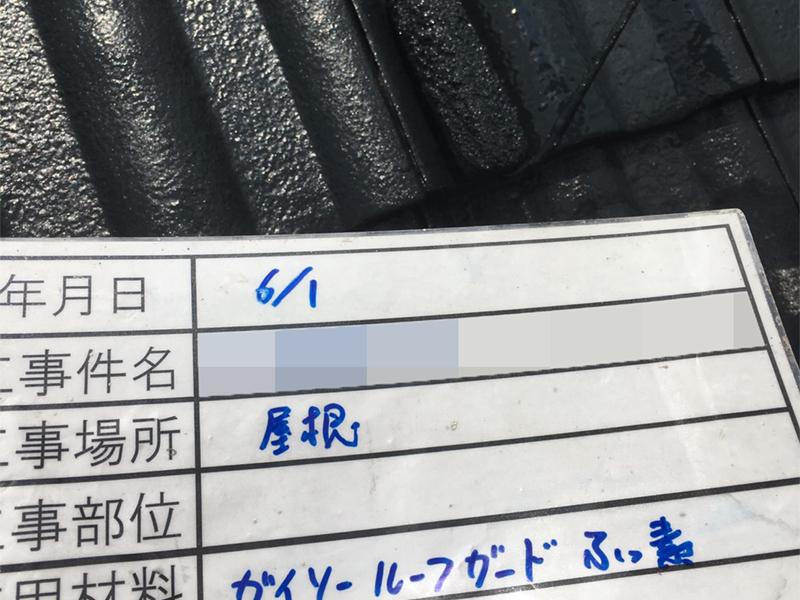 年月日 6/1
工事件名
工事場所 屋根
工事部位
用材料 ガイソールーフガードふっ素